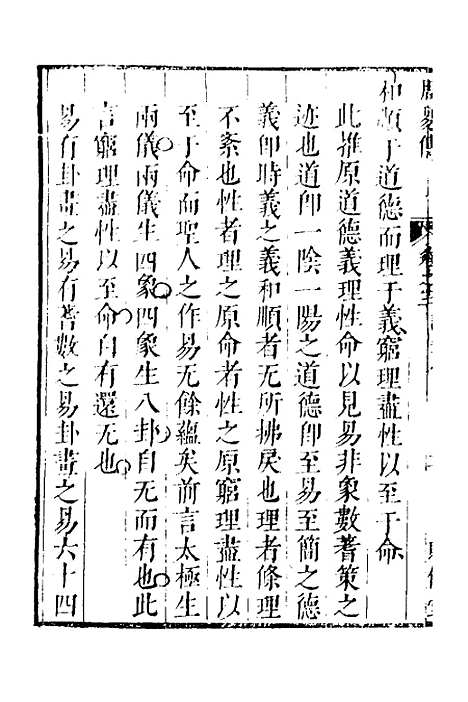 和順于道德而理于義窮理盡性以至于命
此推原道德義理性命以見易非象數蓍策之
迹也道即一陰一陽之道德即至易至簡之德
義即時義之義和順者无所拂戾也理者條理
不紊也性者理之原命者性之原窮理盡性以
至于命而聖人之作易无餘蘊矣前言太極生
兩儀兩儀生四象四象生八卦自无而有也此
言窮理盡性以至命自有還无也
易有卦畫之易有蓍數之易卦畫之易六十四